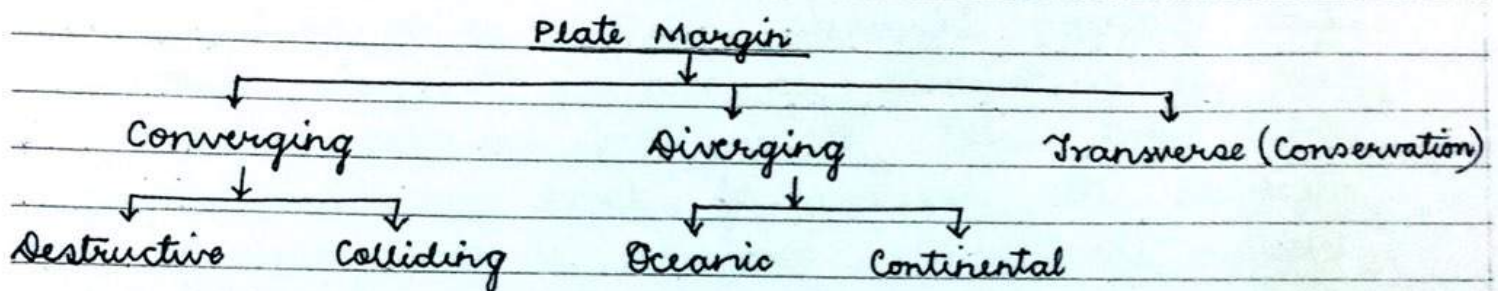 Plate Margin
Converging Diverging Transverse (Conservation)
Destructive Colliding Oceanic Continental